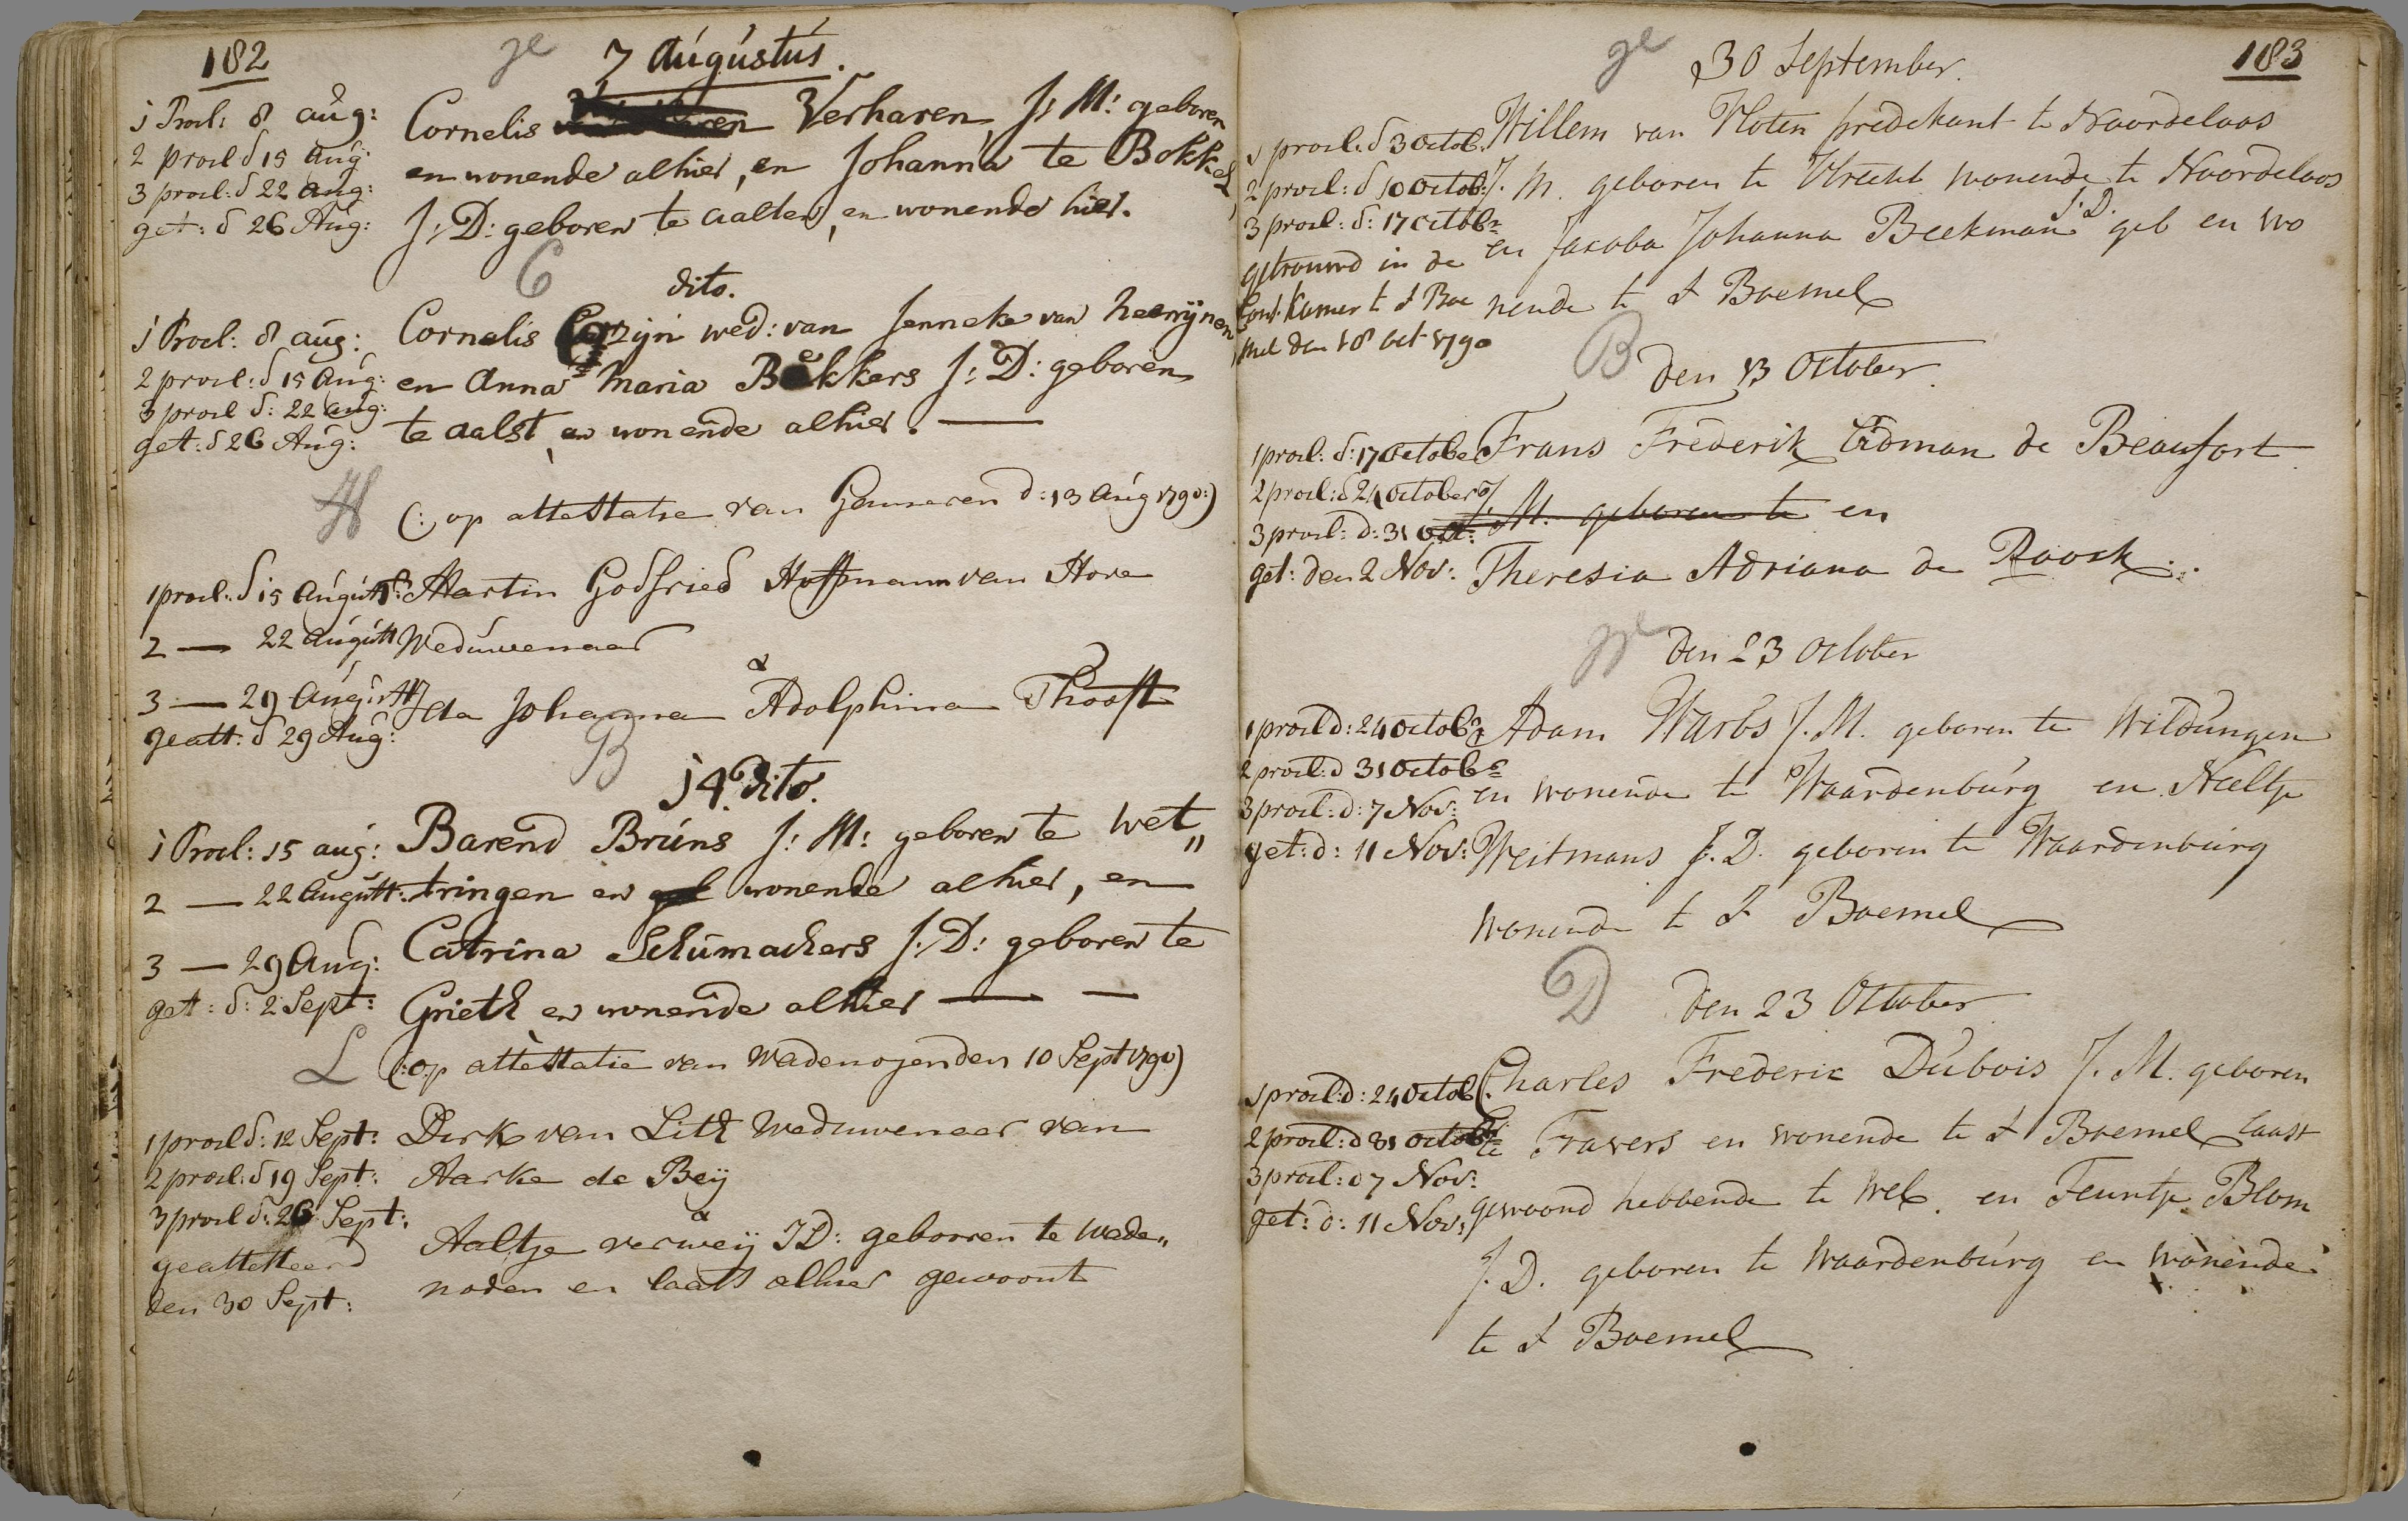 182
ge 7 Augustus.
1 Procl: 8 aug:
2 procl d 15 Aug:
3 procl: d 22 Aug:
get: d 26 Aug:
Cornelis Verharen J: M: geboren
en wonende alhier, en Johanna te Bokkel
J: D: geboren te aalten, en wonende hier.
C
dito.
1 Procl: 8 aug:
2 procl: d 15 Aug:
3 procl d: 22 aug:
get: d 26 Aug:
Cornelis wed: van Jenneke van heerwijnen
en Anna Maria Bekkers J: D: geboren
te aalst, en wonende alhier.
H (: op attestatie van Gameren d: 13 Aug 1790:)
1 procl. d 15 August:
2 — 22 August
3 — 29 August
geatt: d 29 Aug:
Martin Godfried Hoffmann van Hove
Weduwenaar
&
Ida Johanna Adolphina Thooft
B
14. dito.
1 Procl: 15 aug:
2 — 22 August:
3 — 29 Aug:
get: d: 2 Sept:
Barend Bruns J: M: geboren te Wet„
tringen en wonende alhier, en
Catrina Schumachers J: D: geboren te
Grieth en wonende alhier —
L (: op attestatie van Wadenoyen den 10 Sept 1790)
1 procl d: 12 Sept:
2 procl: d 19 Sept:
3 procl d: 26 Sept:
geattesteerd
den 30 Sept:
Dirk van Lith Weduwenaar van
Aarke de Beij
&
Aaltje verweij JD: geboren te Wade„
noden en laatst alhier gewoont
183
ge 30 September.
1 procl: d 3 Octob.
2 procl: d 10 Octob:
3 procl: d: 17 octobr
getrouwd in de
Cons. kamer t Z Boe
mel den 18 oct 1790
Willem van Vloten predikant te Noordeloos
J. M. geboren te Utrecht wonende te Noordeloos
en Jacoba Johanna Beekman J. D. geb en wo
nende te Z Boemel
B
den 13 October.
1 procl: d: 17 Octobe
2 procl: d 24 October
3 procl: d: 31 Oct:
get: den 2 Nov:
Frans Frederik Eidman de Beaufort
J. M. geboren te en
Theresia Adriana de Roock.
ge
den 23 October
1 procl d: 24 Octobr
2 procl: d 31 Octobr
3 procl: d: 7 Nov:
get: d: 11 Nov:
Adam Warbs J. M. geboren te Wildungen
en wonende te Waardenburg en Neeltje
Weitmans J. D. geboren te Waardenburg
wonende te Z Boemel
D
den 23 October
1 procl: d: 24 Octob
2 procl: d 31 Octob
3 procl: d 7 Nov:
get: d: 11 Nov:
Charles Frederic Dubois J. M. geboren
te Travers en wonende te Z Boemel laast
gewoond hebbende te Wel. en Teuntje Blom
J. D. geboren te Waardenburg en wonende
te Z Boemel